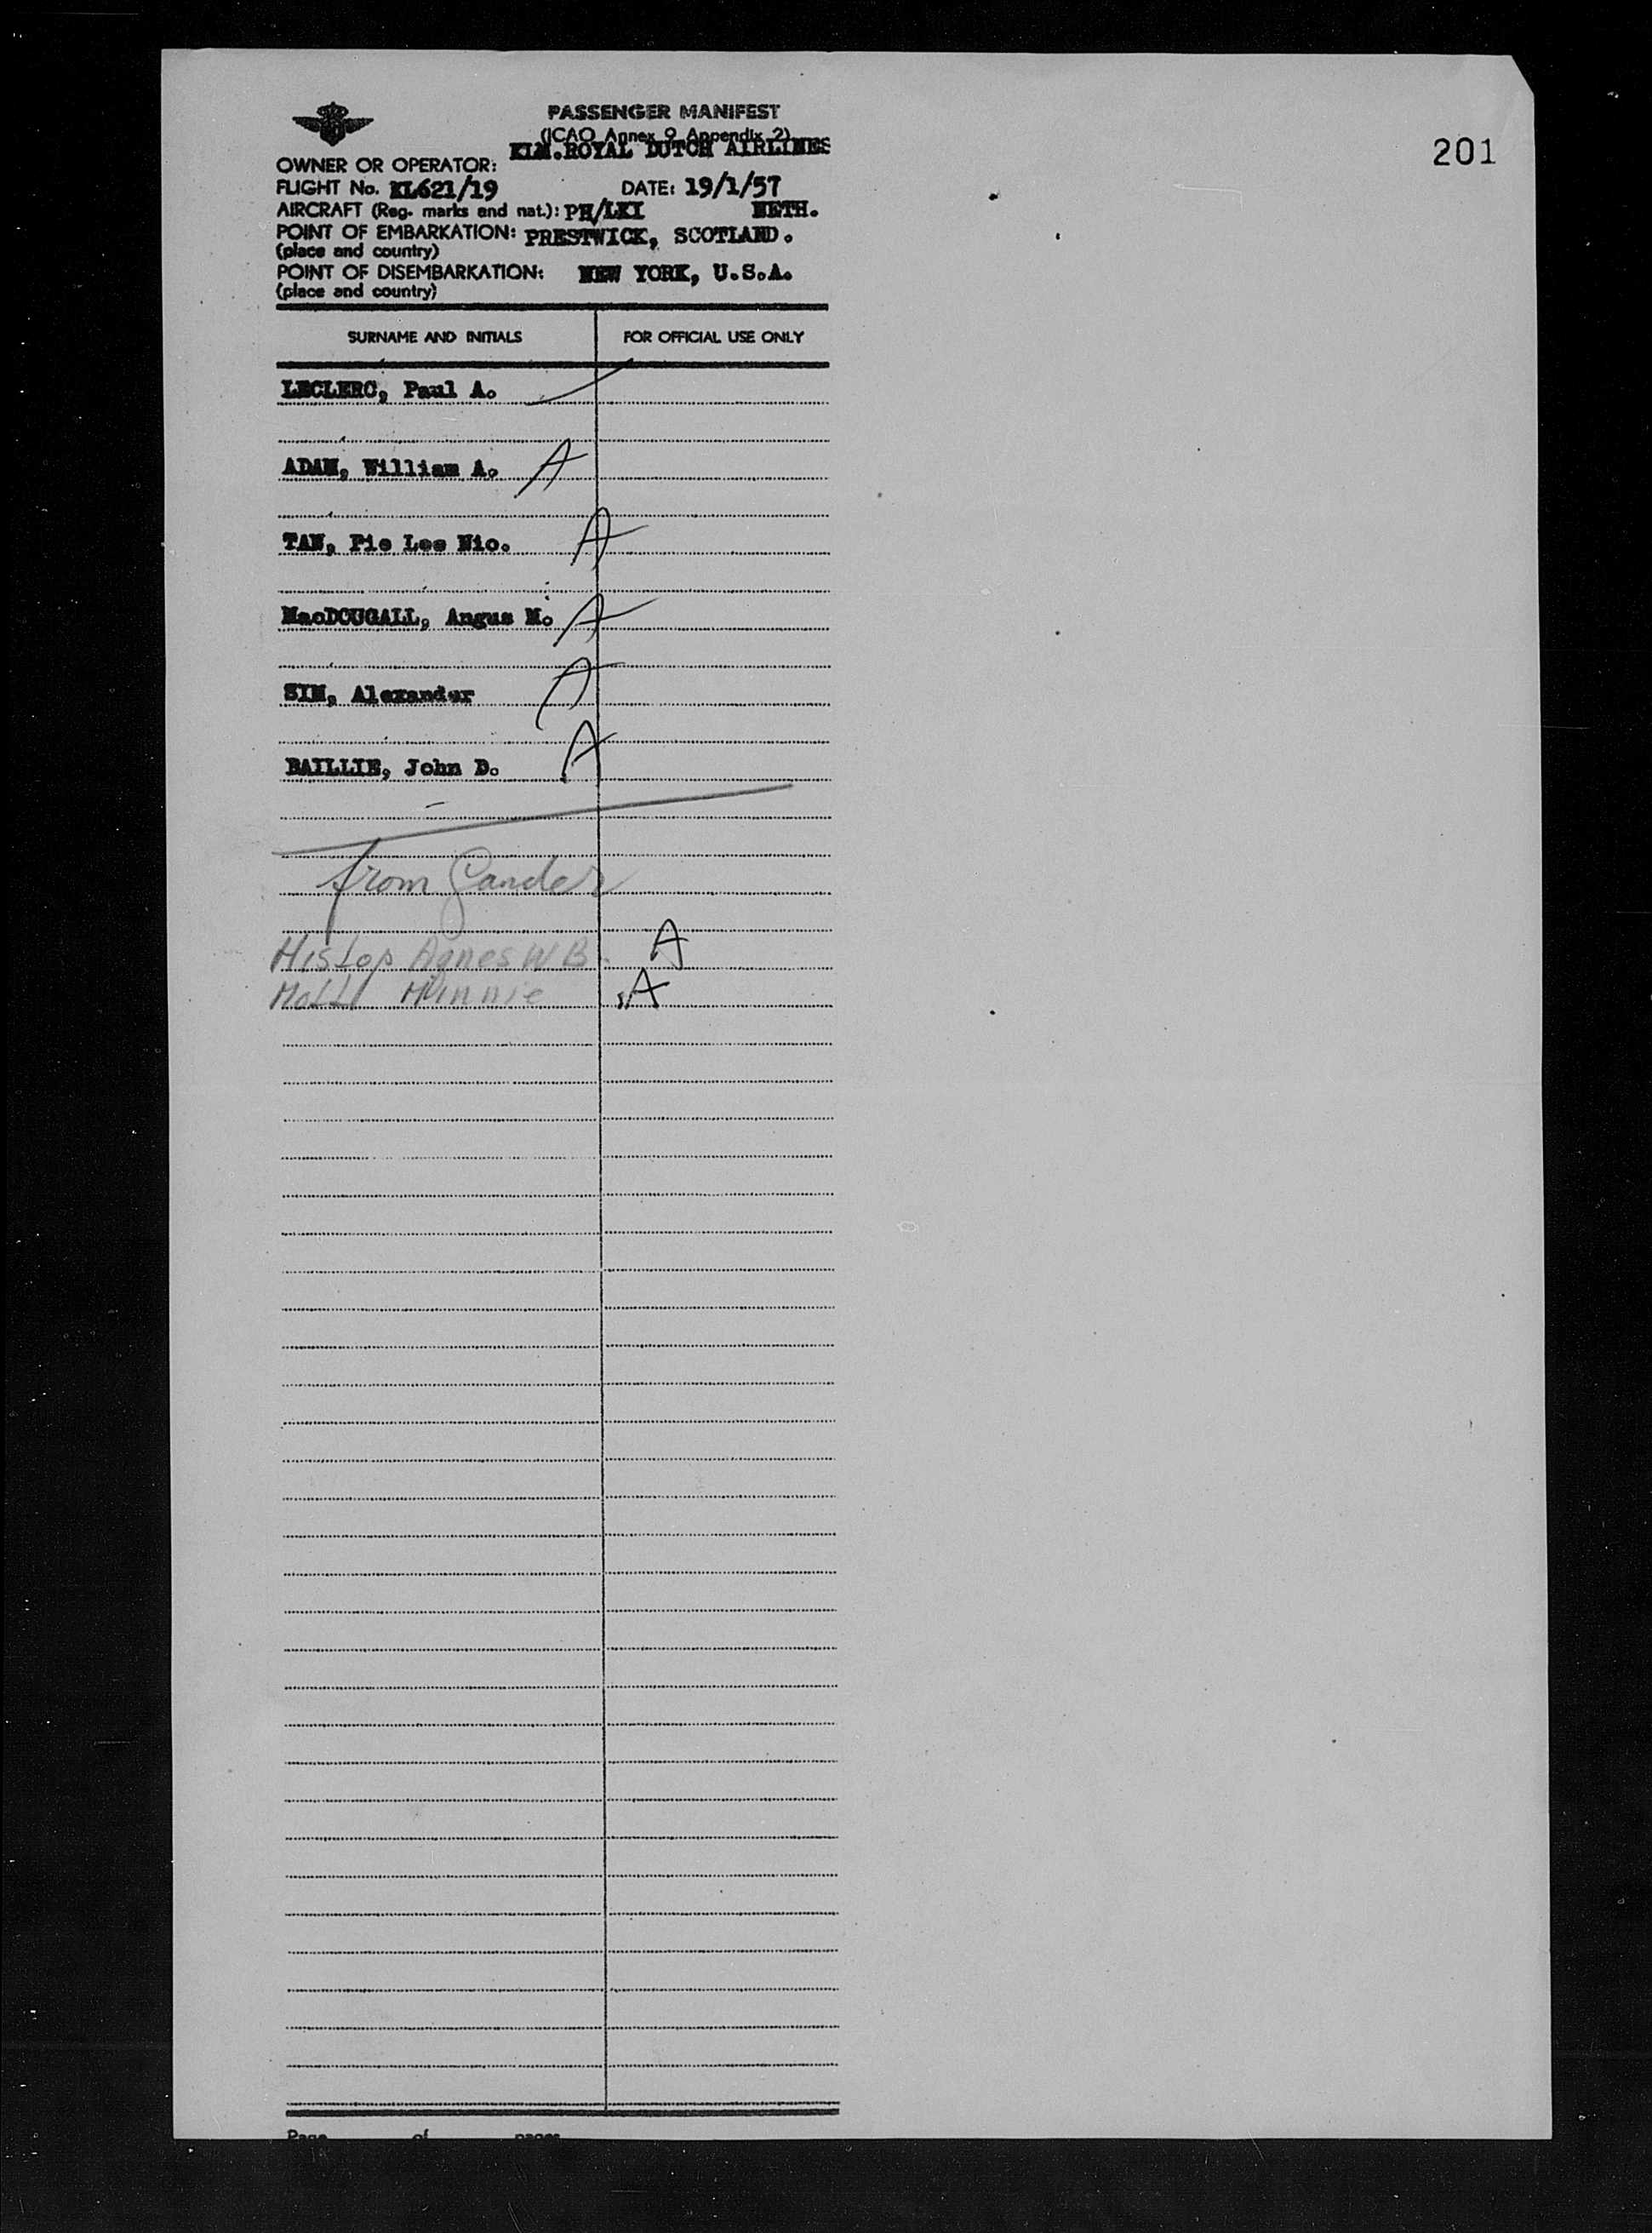 PASSENGER MANIFEST
(ICAO Annex 9 Appendix 2)
201
OWNER OR OPERATOR: KLM.ROYAL DUTCH AIRLINES
FLIGHT No. KL621/19 DATE: 19/1/57
AIRCRAFT (Reg. marks and nat.): PH/LKI NETH.
POINT OF EMBARKATION: PRESTWICK, SCOTLAND.
(place and country)
POINT OF DISEMBARKATION: NEW YORK, U.S.A.
(place and country)
SURNAME AND INITIALS FOR OFFICIAL USE ONLY
LECLERC, Paul A.
ADAM, William A. A
TAN, Pie Lee Nio. A
MacDOUGALL, Angus M. A
SIM, Alexander A
BAILLIE, John D. A
from Gander
Hislop Agnes W B. A
Minnie A
Page of pages